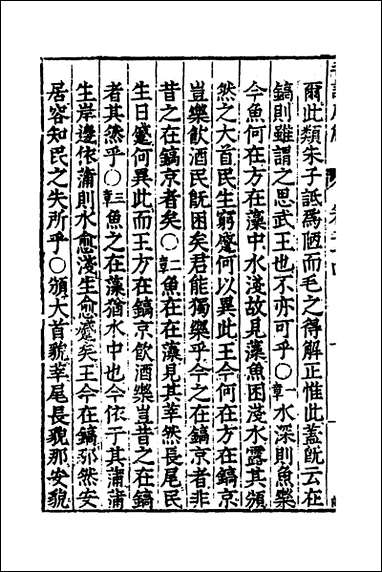 爾此類朱子詆為陋而毛之得解正惟此蓋旣云在
鎬則雖謂之思武王也不亦可乎○一章水深則魚樂
今魚何在方在藻中水淺故見藻魚困淺水露其頒
然之大首民生窮蹙何以異此王今何在方在鎬京
豈樂飲酒民旣困矣君能獨樂乎今之在鎬京者非
昔之在鎬京者矣○二章魚在在藻見其莘然長尾民
生日蹙何異此而王方在鎬京飲酒樂豈昔之在鎬
者其然乎○三章魚之在藻猶水中也今依于其蒲蒲
生岸邊依蒲則水愈淺生愈蹙矣王今在鎬那然安
居容知民之失所乎○頒大首貌莘尾長貌那安貌